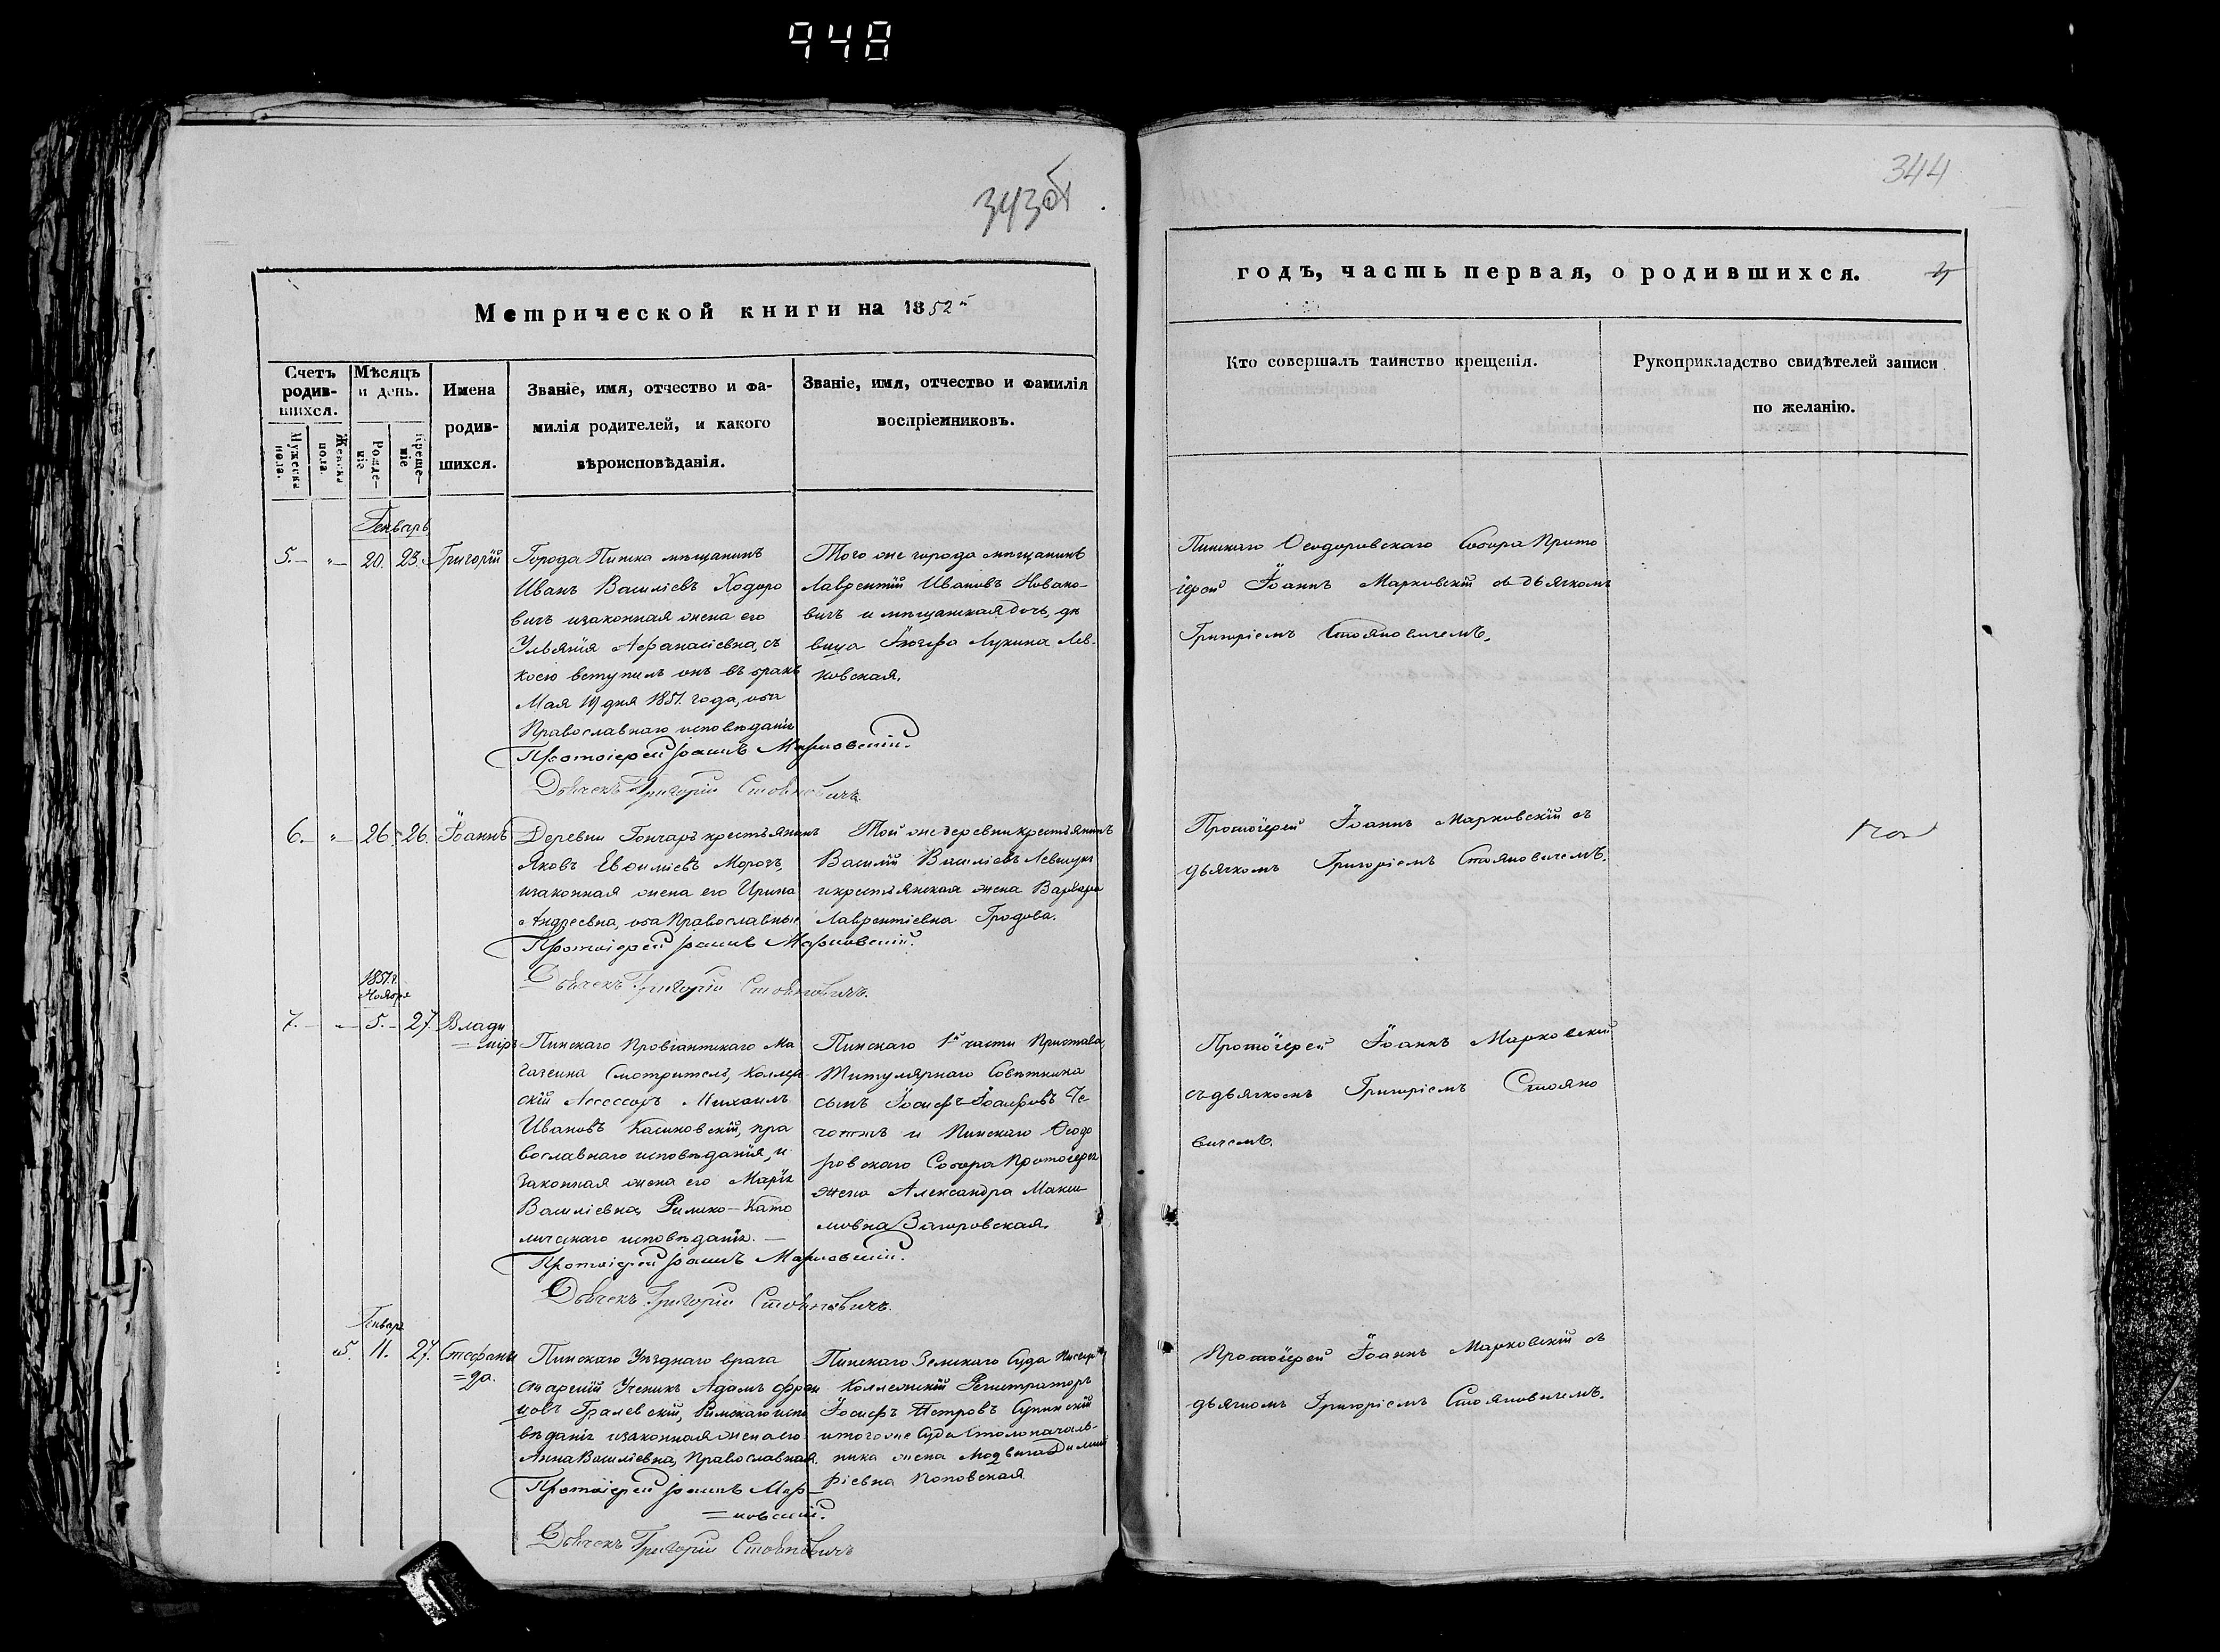 948
343об
344
Метрической книги на 1852й
годъ, часть первая, о родившихся.
Счетъ родив-
шихся.
Мужеска пола.
Женска пола.
Мѣсяцъ
и день.
Рожде-
ніе
Креще-
ніе
Имена
родив-
шихся.
Званіе, имя, отчество и фа-
милія родителей, и какого
вѣроисповѣданія.
Званіе, имя, отчество и фамилія
воспріемниковъ.
Кто совершалъ таинство крещенія.
Рукоприкладство свидѣтелей записи
по желанію.
Генварь
5. 20. 23. Григорій
Города Пинска мѣщанинъ
Иванъ Василіевъ Ходоро
вичъ изаконная жена его
Ульянія Афанасіевна, съ
коею вступилъ онъ въ бракъ
Мая 19 дня 1851. года, оба
Православнаго исповѣданія
Протоіерей Іоаннъ Марковскій.
Дьячекъ Григорій Стояновичъ.
Того же города мѣщанинъ
Лаврентій Ивановъ Новако-
вичъ и мѣщанская дочь, дѣ
вица Іозефа Лукина Лев-
ковская.
Пинскаго Ѳеодоровскаго Собора Прото
іерей Іоаннъ Марковскій съ дьячкомъ
Григоріемъ Стояновичемъ.
6. 26 26. Іоаннъ
Деревни Гончаръ крестьянинъ
Яковъ Евѳиміевъ Морозъ,
изаконная жена его Ирина
Андреевна, оба Православные
Протоіерей Іоаннъ Марковскій.
Дьячекъ Григорій Стояновичъ.
Той же деревни крестьянинъ
Василій Василіевъ Левчукъ
икрестьянская жена Варвара
Лаврентіевна Гродова.
Протоіерей Іоаннъ Марковскій съ
дьячкомъ Григоріемъ Стояновичемъ.
1851. г.
Ноября
7. 5. 27. Влади
=міръ
Пинскаго Провіантскаго Ма
газеина Смотритель, Коллеж
скій Ассессоръ Михаилъ
Ивановъ Касиновскій, пра
вославнаго исповѣданія, и
законная жена его Марія
Василіевна, Римско-Като
лическаго исповѣданія.
Протоіерей Іоаннъ Марковскій.
Дьячекъ Григорій Стояновичъ.
Пинскаго 1й части Пристава,
Титулярнаго Совѣтника
сынъ Іосифъ Іосифовъ Че
чоттъ и Пинскаго Ѳеодо
ровскаго Собора Протоіерея
жена Александра Макси
мовна Загоровская.
Протоіерей Іоаннъ Марковскій
съдьячкомъ Григоріемъ Стояно
вичемъ.
Генваря
5. 11. 27. Стефани
=да.
Пинскаго Уѣзднаго врача
старшій Ученикъ Адамъ Фран
цовъ Гралевскій, Римскаго испо
вѣданія изаконная жена его
Анна Василіевна, Православная.
Протоіерей Іоаннъ Мар-
=ковскій.
Дьячекъ Григорій Стояновичъ
Пинскаго Земскаго Суда
Коллежскій Регистраторъ
Іосифъ Петровъ Супинскій
итогоже Суда Столоначаль-
ника жена
ріевна Поповская
Протоіерей Іоаннъ Марковскій съ
дьячкомъ Григоріемъ Стояновичемъ.